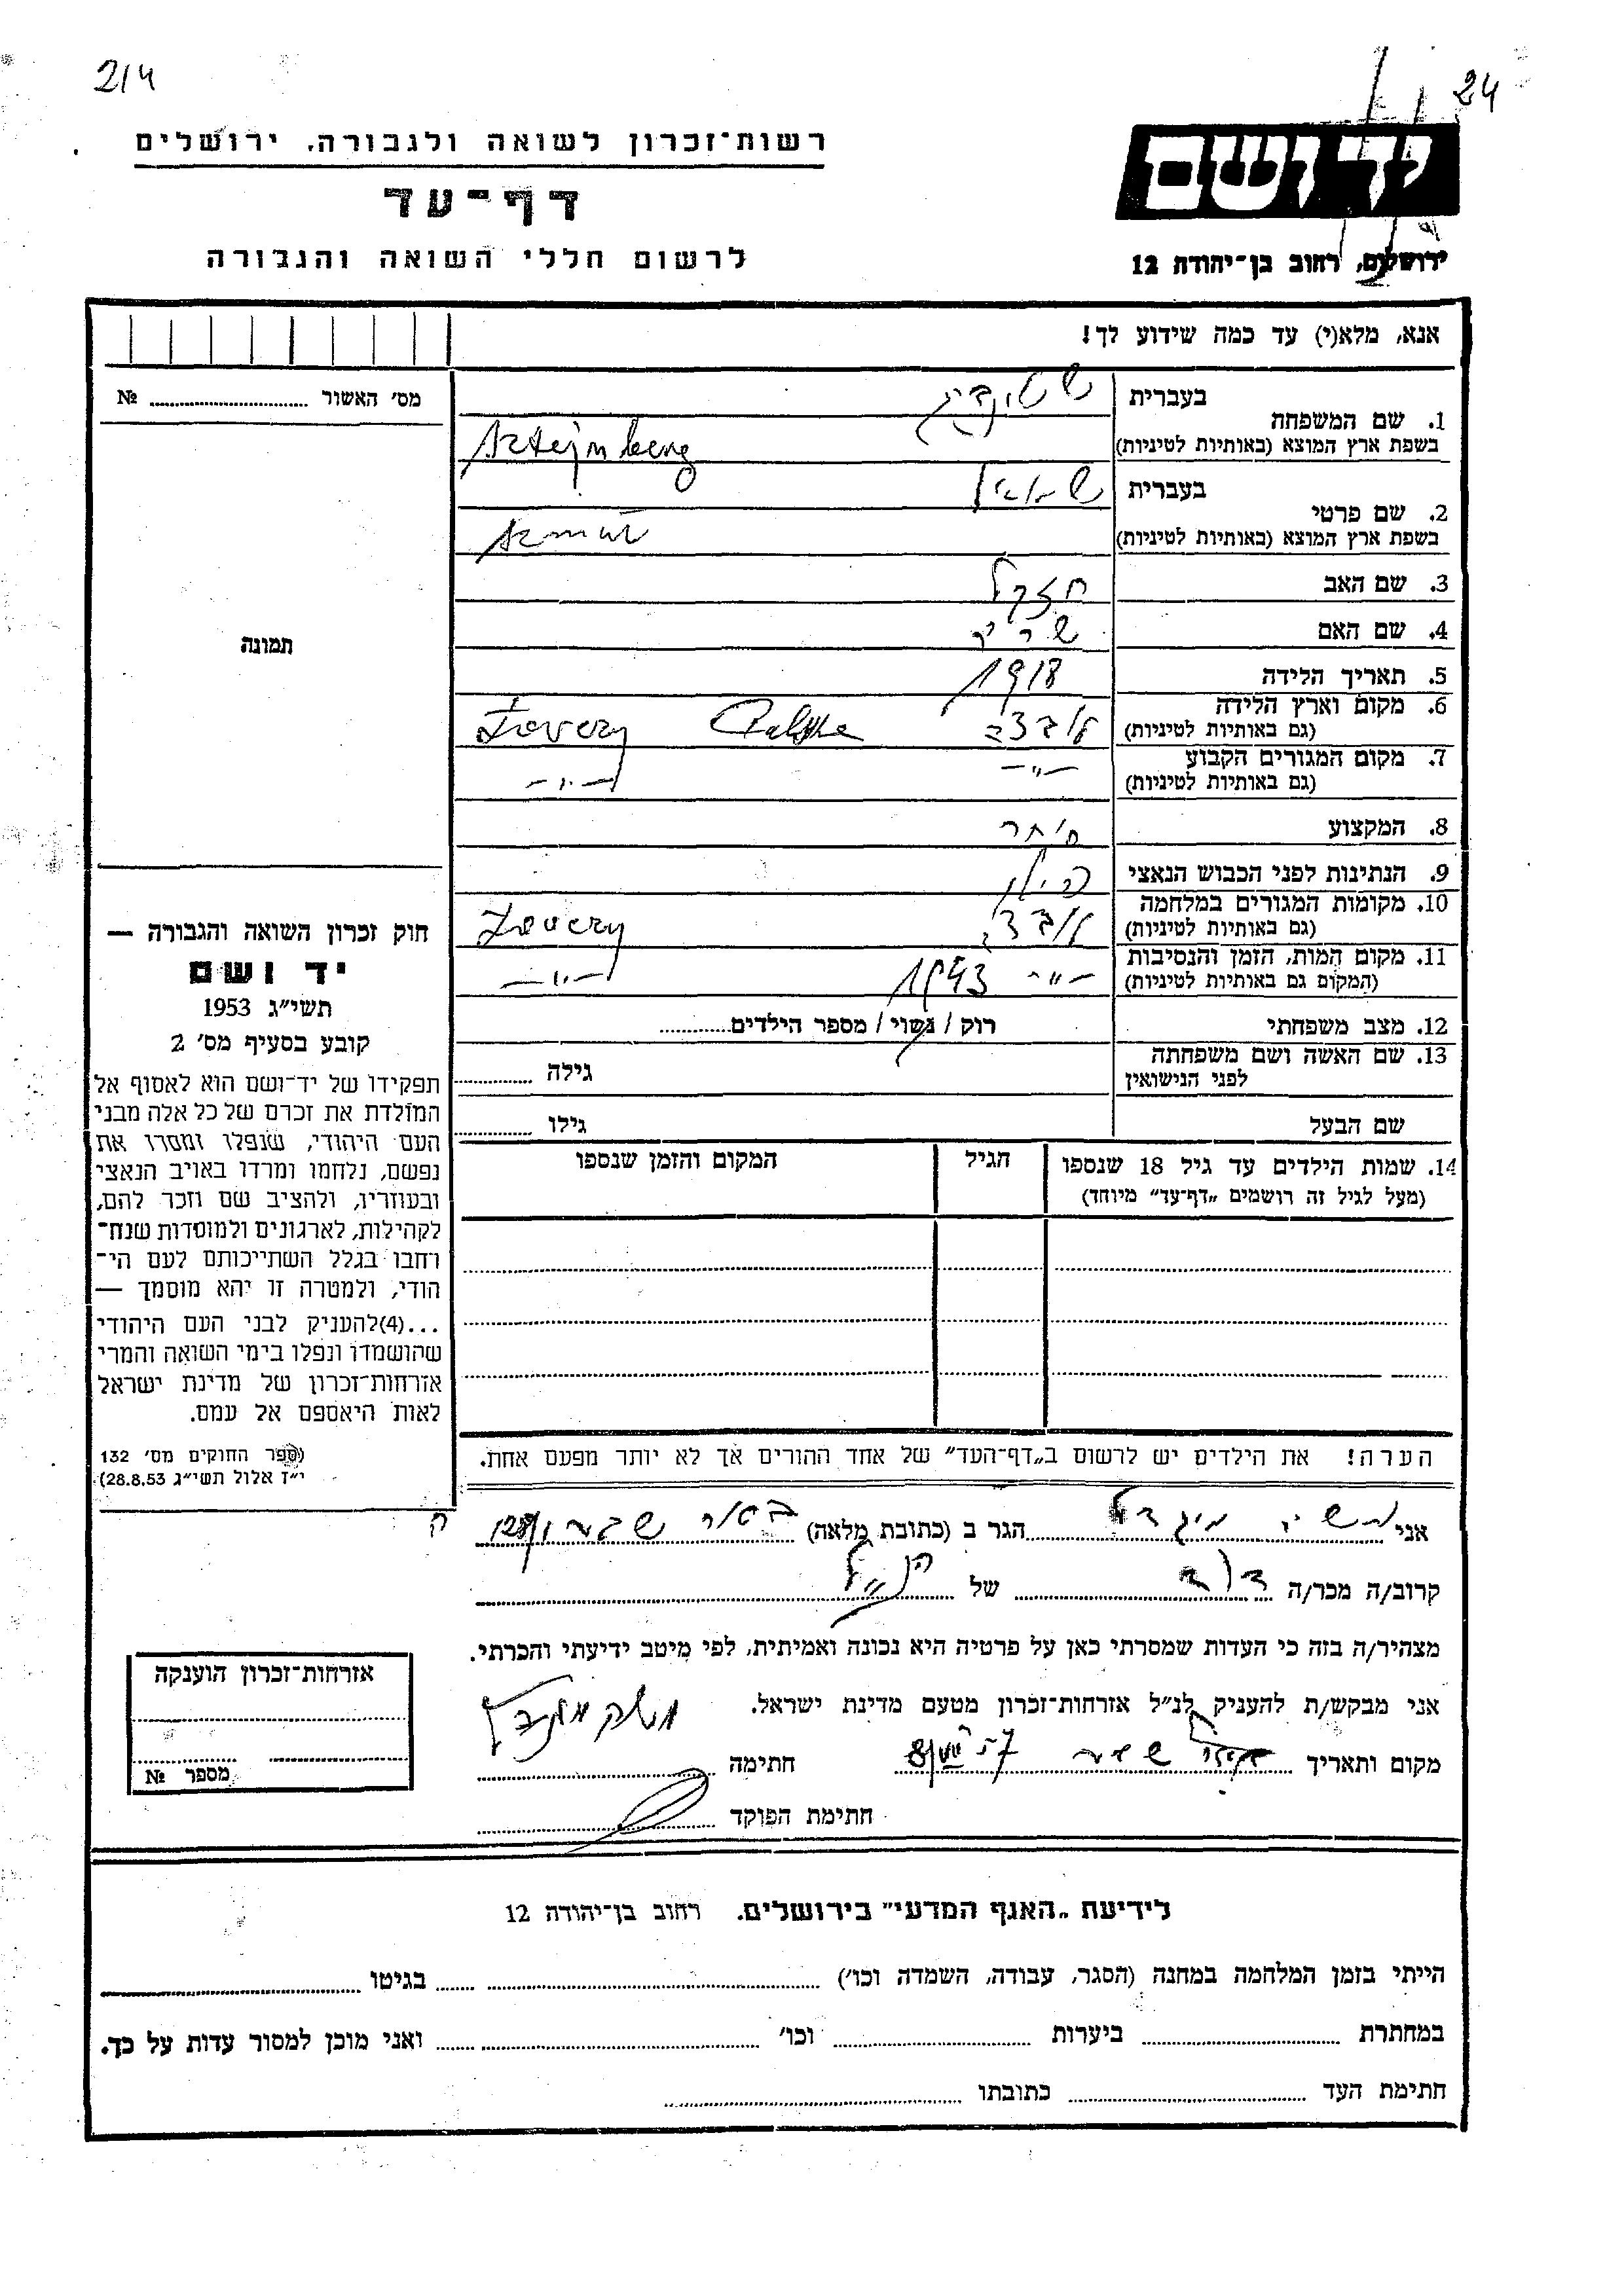 214
24
רשות־זכרון לשואה ולגבורה, ירושלים
דף־עד
לרשום חללי השואה והגבורה
יד ושם
ירושלים, רחוב בן־יהודה 12
אנא, מלא(י) עד כמה שידוע לך!
מס׳ האשור № ..........
1. שם המשפחה בעברית
בשפת ארץ המוצא (באותיות לטיניות) Sztejnberg
2. שם פרטי בעברית שמואל
בשפת ארץ המוצא (באותיות לטיניות)
3. שם האב יחזקאל
4. שם האם
5. תאריך הלידה 1918
6. מקום וארץ הלידה
(גם באותיות לטיניות) Polska
7. מקום המגורים הקבוע —״—
(גם באותיות לטיניות) —״—
8. המקצוע
9. הנתינות לפני הכבוש הנאצי פולין
10. מקומות המגורים במלחמה
(גם באותיות לטיניות)
11. מקום המות, הזמן והנסיבות —״— 1943
(המקום גם באותיות לטיניות) —״—
12. מצב משפחתי רוק / נשוי / מספר הילדים..........
13. שם האשה ושם משפחתה
לפני הנישואין גילה ..........
שם הבעל גילו ..........
14. שמות הילדים עד גיל 18 שנספו
(מעל לגיל זה רושמים „דף־עד״ מיוחד)
הגיל
המקום והזמן שנספו
הערה! את הילדים יש לרשום ב„דף־העד״ של אחד ההורים אך לא יותר מפעם אחת.
תמונה
חוק זכרון השואה והגבורה —
יד ושם
תשי״ג 1953
קובע בסעיף מס׳ 2
תפקידו של יד־ושם הוא לאסוף אל
המולדת את זכרם של כל אלה מבני
העם היהודי, שנפלו ומסרו את
נפשם, נלחמו ומרדו באויב הנאצי
ובעוזריו, ולהציב שם וזכר להם,
לקהילות, לארגונים ולמוסדות שנח־
רחבו בגלל השתייכותם לעם הי־
הודי, ולמטרה זו יהא מוסמך —
...(4)להעניק לבני העם היהודי
שהושמדו ונפלו בימי השואה והמרי
אזרחות־זכרון של מדינת ישראל
לאות היאספם אל עמם.
(ספר החוקים מס׳ 132
י״ז אלול תשי״ג 28.8.53)
אני הגר ב (כתובת מלאה) באר שבע
קרוב/ה מכר/ה דוד של הנ״ל
מצהיר/ה בזה כי העדות שמסרתי כאן על פרטיה היא נכונה ואמיתית, לפי מיטב ידיעתי והכרתי.
אני מבקש/ת להעניק לנ״ל אזרחות־זכרון מטעם מדינת ישראל.
מקום ותאריך חתימה
חתימת הפוקד
אזרחות־זכרון הוענקה
מספר №
לידיעת „האגף המדעי״ בירושלים. רחוב בן־יהודה 12
הייתי בזמן המלחמה במחנה (הסגר, עבודה, השמדה וכו׳) .......... בגיטו ..........
במחתרת .......... ביערות .......... וכו׳ .......... ואני מוכן למסור עדות על כך.
חתימת העד .......... כתובתו ..........